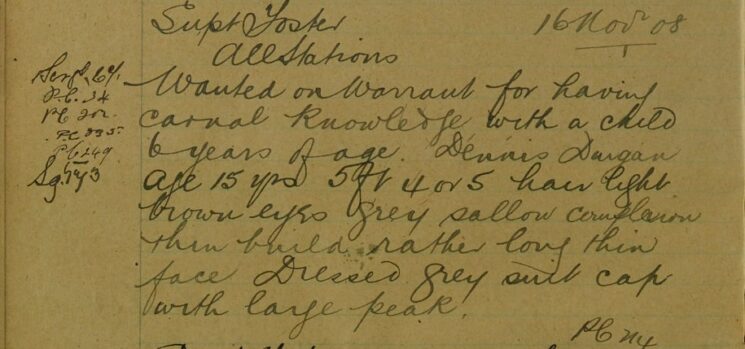 Supt Foster 16 Novr 08
All Stations
Wanted on Warrant for having
carnal knowledge with a child
6 years of age. Dennis Durgan
age 15 yrs 5 ft 4 or 5 hair light
brown eyes grey sallow complexion
thin build rather long thin
face Dressed grey suit cap
with large peak.
P.C. 34
PC 202
P.C. 235
PC 249
PC